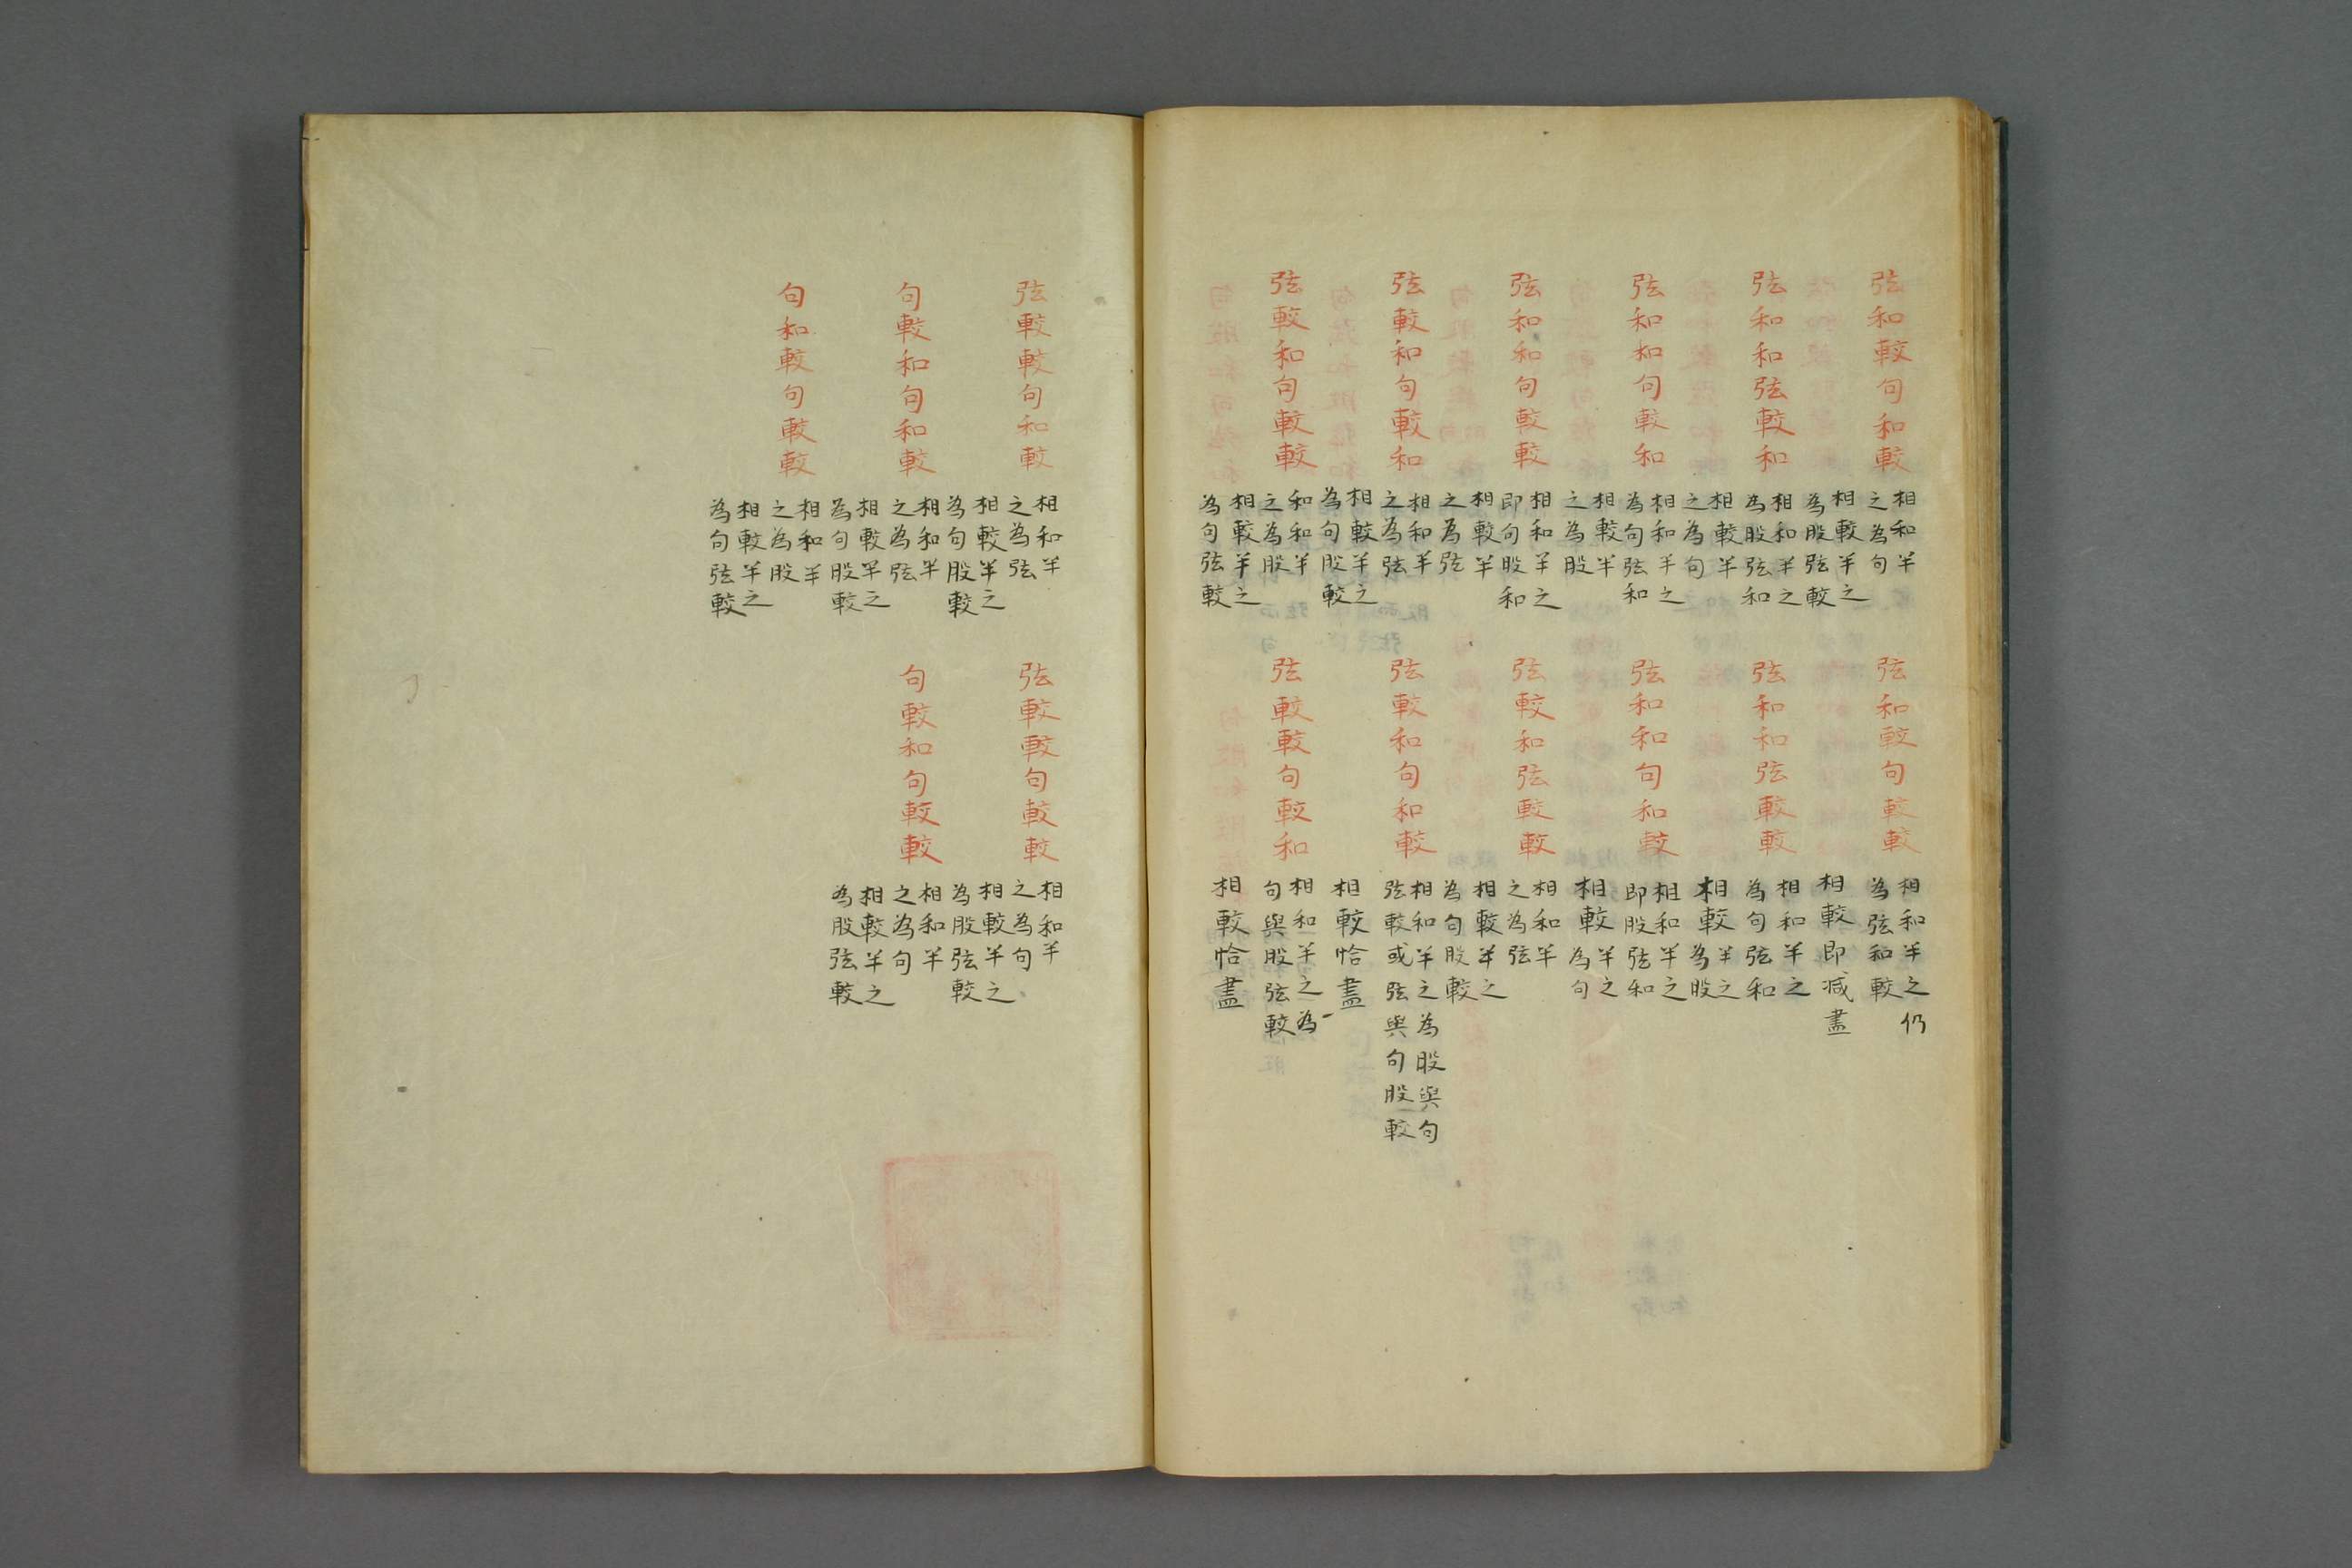 弦和較句和較
相和半
之為句
相較半之
為股弦較
弦和較句較較
相和半之仍
為弦和較
相較即減盡
弦和和弦較和
相和半之
為股弦和
相較半
之為句
弦和和弦較較
相和半之
為句弦和
相較半之
為股
弦和和句較和
相和半之
為句弦和
相較半
之為股
弦和和句和較
相和半之
即股弦和
相較半之
為句
弦和和句較較
相和半之
即句股和
相較半
之為弦
弦較和弦較較
相和半
之為弦
相較半之
為句股較
弦較和句較和
相和半
之為弦
相較半之
為句股較
弦較和句和較
相和半之為股與句
弦較或弦與句股較
相較恰盡
弦較和句較較
和和半
之為股
相較半之
為句弦較
弦較較句較和
相和半之為
句與股弦較
相較恰盡
弦較較句和較
相和半
之為弦
相較半之
為句股較
弦較較句較較
相和半
之為句
相較半之
為股弦較
句較和句和較
相和半
之為弦
相較半之
為句股較
句較和句較較
相和半
之為句
相較半之
為股弦較
句和較句較較
相和半
之為股
相較半之
為句弦較